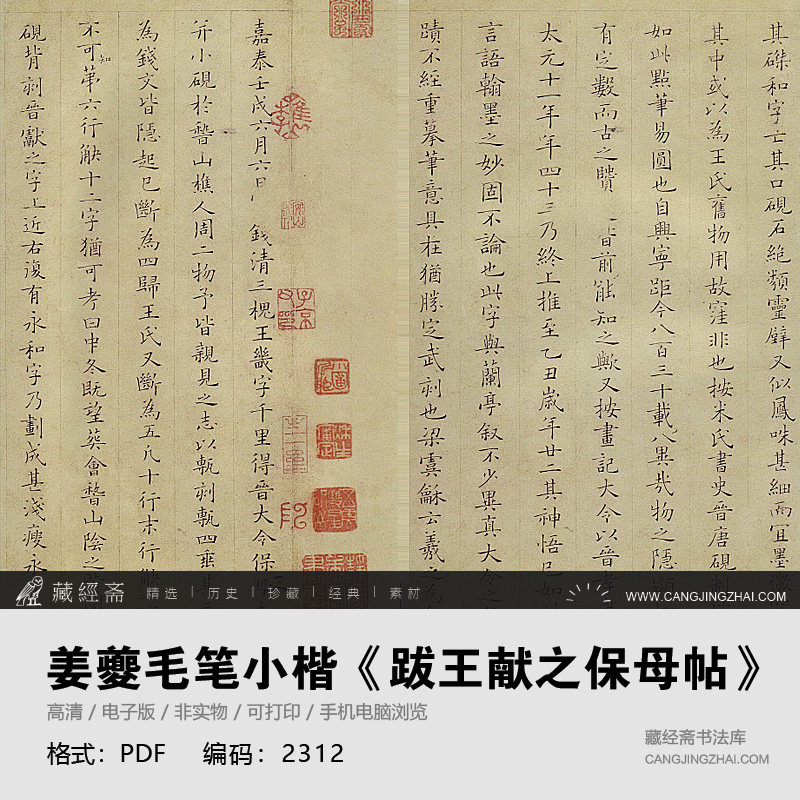 嘉泰壬戌六月六日錢清三槐王畿字千里得晉大令保母
并小硯於稽山樵人周二物予皆親見之志以甎刻甎四垂其三
為錢文皆隱起已斷為四歸王氏又斷為五凡十行末行缺
不可知第六行缺十二字猶可考曰中冬既望葬會稽山陰之
硯背刻晉獻之字上近右復有永和字乃劃成甚淺瘦永
其磔和字亡其口硯石絕類靈璧又似鳳咮甚細而宜墨微
其中或以為王氏舊物用故窪非也按米氏書史晉唐硯制
如此點筆易圓也自興寧距今八百三十載八異哉物之隱顯
有定數而古之賢前能知之歟又按畫記大令以晉孝
太元十一年年四十三乃終上推至乙丑歲年廿二其神悟已如
言語翰墨之妙固不論也此字與蘭亭敘不少異真大令之
蹟不經重摹筆意具在猶勝定武刻也梁虞龢云羲之為
藏經斋 精选 | 历史 | 珍藏 | 经典 | 素材
WWW.CANGJINGZHAI.COM
姜夔毛笔小楷《跋王献之保母帖》
高清 / 电子版 / 非实物 / 可打印 / 手机电脑浏览
格式：PDF 编码：2312
藏经斋书法库
CANGJINGZHAI.COM